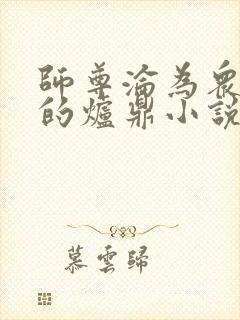 師尊淪為衆
的爐鼎小說
慕雲歸